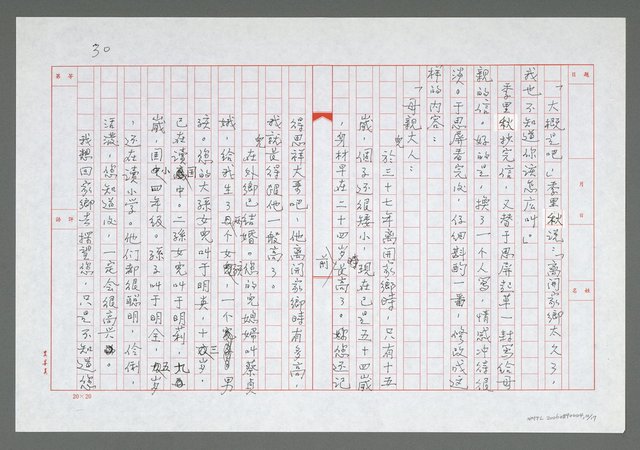 30
「大概是吧」季里秋說:「離開家鄉太久了,
我也不知道你該怎麼叫。」
季里秋秋完信,又替于思屏起草一封寫給母
親的信。好的是,換了一個人寫,情感冲徒很
淡。于思屏看完後,仔細斟酌一番,修改成這
样的内容:
「母親大人:
兒於三十七年离開家鄉時,只有十五
歲,個子还很矮小,現在已是五十四歲
,身材早在二十四岁時長高了。您还记
得思祥大哥吧,他离開家鄉時有多高,
我就長得跟他一般高了。
兒在外鄉已結婚。您的兒媳婦叫蔡貞
娥,給我生了两個女孩,一個男
孩。您的大孫女兒叫于明英,十三岁,
已在讀國中。二孫女兒叫于明莉,九
歲,国小四年级。孫子叫于明全,五岁
,还在讀小学。他们都很聰明,伶俐,
活潑,您知道後,一定会很高兴。
我想回家鄉去探望您,只是不知道您
20×20